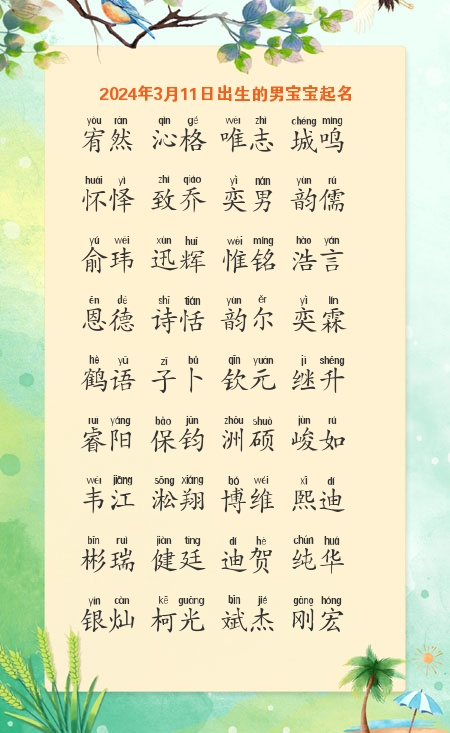 2024年3月11日出生的男宝宝起名
yòu rán qìn gé wéi zhì chéng míng
宥然 沁格 唯志 城鸣
huái yì zhì qiáo yì nán yùn rú
怀怿 致乔 奕男 韵儒
yú wěi xùn huī wéi míng hào yán
俞玮 迅辉 惟铭 浩言
ēn dé shī tián yùn ěr yì lín
恩德 诗恬 韵尔 奕霖
hè yǔ zǐ bǔ qīn yuán jì shēng
鹤语 子卜 钦元 继升
ruì yáng bǎo jūn zhōu shuò jùn rú
睿阳 保钧 洲硕 峻如
wéi jiāng sōng xiáng bó wéi xī dí
韦江 淞翔 博维 熙迪
bīn ruì jiàn tíng dí hè chún huá
彬瑞 健廷 迪贺 纯华
yín càn kē guāng bīn jié gāng hóng
银灿 柯光 斌杰 刚宏